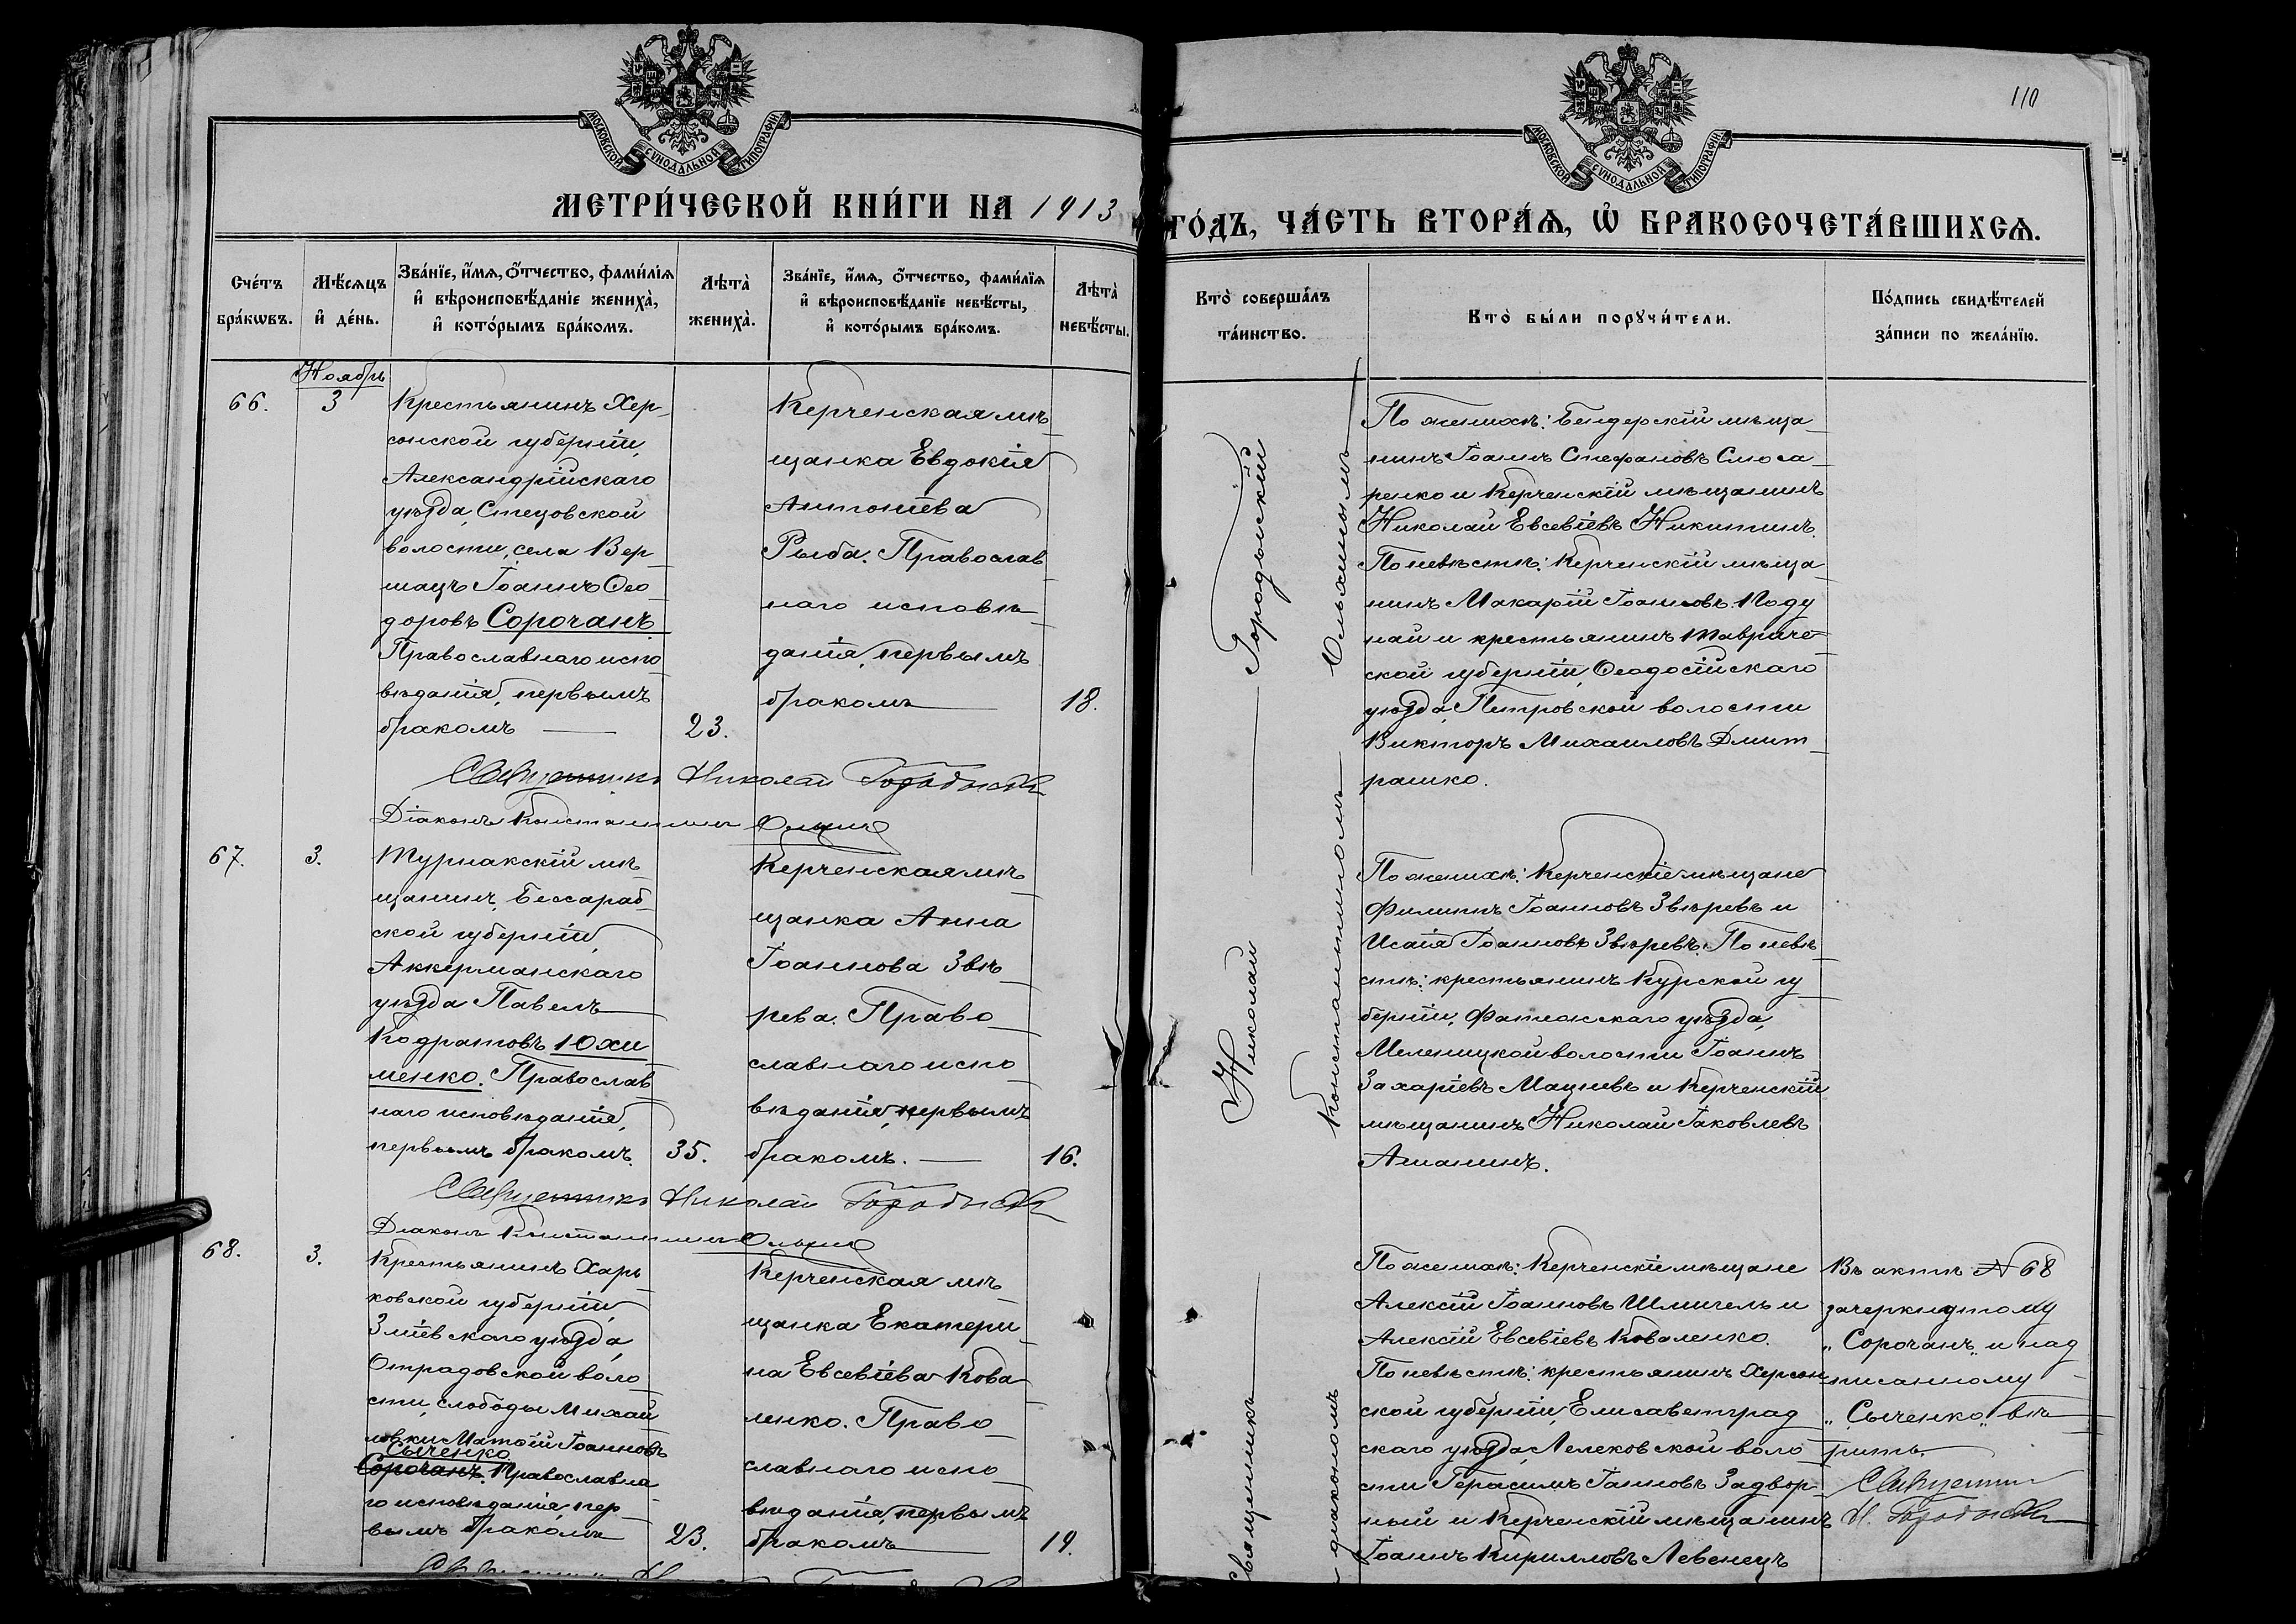 110
МОСКОВСКОЙ СѴНОДАЛЬНОЙ ТИПОГРАФІИ
МОСКОВСКОЙ СѴНОДАЛЬНОЙ ТИПОГРАФІИ
МЕТРИ́ЧЕСКОЙ КНИ́ГИ НА 1913
ГО́ДЪ, ЧА́СТЬ ВТОРА́Ѧ, Ѡ҆ БРАКОСОЧЕТА́ВШИХСѦ.
Сче́тъ
бра́кѡвъ.
Мѣ́сѧцъ
и҆ де́нь.
Зва́нїе, и҆́мѧ, ѻ҆́тчество, фами́лїѧ
и҆ вѣроисповѣ́данїе жениха̀,
и҆ кото́рымъ бра́комъ.
Лѣта̀
жениха̀.
Зва́нїе, и҆́мѧ, ѻ҆́тчество, фами́лїѧ
и҆ вѣроисповѣ́данїе невѣ́сты,
и҆ кото́рымъ бра́комъ.
Лѣта̀
невѣ́сты.
Кто̀ соверша́лъ
та́инство.
Кто̀ бы́ли порꙋчи́тели.
По́дпись свидѣ́телей
за́писи по жела́нїю.
Ноябрь
66.
3
Крестьянинъ Хер-
сонской губерніи,
Александрійскаго
уѣзда, Стецовской
волости, села Вер-
шацъ Іоаннъ Ѳео-
доровъ Сорочанъ.
Православнаго испо
вѣданія, первымъ
бракомъ
23.
Керченская мѣ-
щанка Евдокія
Антоніева
Рыба. Православ-
наго исповѣ-
данія, первымъ
бракомъ
18.
Священникъ Николай Городыскій
Діаконъ Константинъ Ольхинъ
По женихѣ: Бендерскій мѣща-
нинъ Іоаннъ Стефановъ Слюса-
ренко и Керченскій мѣщанинъ
Николай Евсевіевъ Никитинъ.
По невѣстѣ: Керченскій мѣща-
нинъ Макарій Іоанновъ Коду
най и крестьянинъ Тавриче-
ской губерніи, Ѳеодосійскаго
уѣзда, Петровской волости
Викторъ Михаиловъ Дмит-
рашко.
67.
3.
Турлакскій мѣ-
щанинъ, Бессараб-
ской губерніи,
Аккерманскаго
уѣзда Павелъ
Кодратовъ Юхи
менко. Православ-
наго исповѣданія,
первымъ бракомъ.
35.
Керченская мѣ-
щанка Анна
Іоаннова Звѣ-
рева. Право-
славнаго испо-
вѣданія, первымъ
бракомъ.
16.
Священникъ Николай Городыскій
Діаконъ Константинъ Ольхинъ
По женихѣ: Керченскіе мѣщане
Филиппъ Іоанновъ Звѣревъ и
Исаія Іоанновъ Звѣревъ. По невѣ-
стѣ: крестьянинъ Курской гу-
берніи, Фатежскаго уѣзда,
Іоаннъ
Захаріевъ Мацневъ и Керченскій
мѣщанинъ Николай Іаковлевъ
Ананинъ.
68.
3.
Крестьянинъ Харь
ковской губерніи,
Зміевскаго уѣзда,
Отрадовской воло-
сти, слободы Михай
ловки Матѳій Іоанновъ
Сыченко
Сорочанъ. Православна-
го исповѣданія, пер-
вымъ бракомъ
23.
Керченская мѣ-
щанка Екатери-
на Евсевіева Кова-
ленко. Право-
славнаго испо-
вѣданія, первымъ
бракомъ
19.
По женихѣ: Керченскіе мѣщане
Алексій Іоанновъ Шмигель и
Алексій Евсевіевъ Коваленко.
По невѣстѣ: крестьянинъ Херсон-
ской губерніи, Елисаветград-
скаго уѣзда, Лелековской воло-
сти Герасимъ Іанновъ Задвор-
ный и Керченскій мѣщанинъ
Іоаннъ Кирилловъ Левенецъ
Въ актѣ № 68
зачеркнутому
„Сорочанъ" и над
писанному
„Сыченко" вѣ-
рить.
Священникъ
Н. Городыскій
Священникъ Николай Городыскій
діакономъ Константиномъ Ольхинымъ